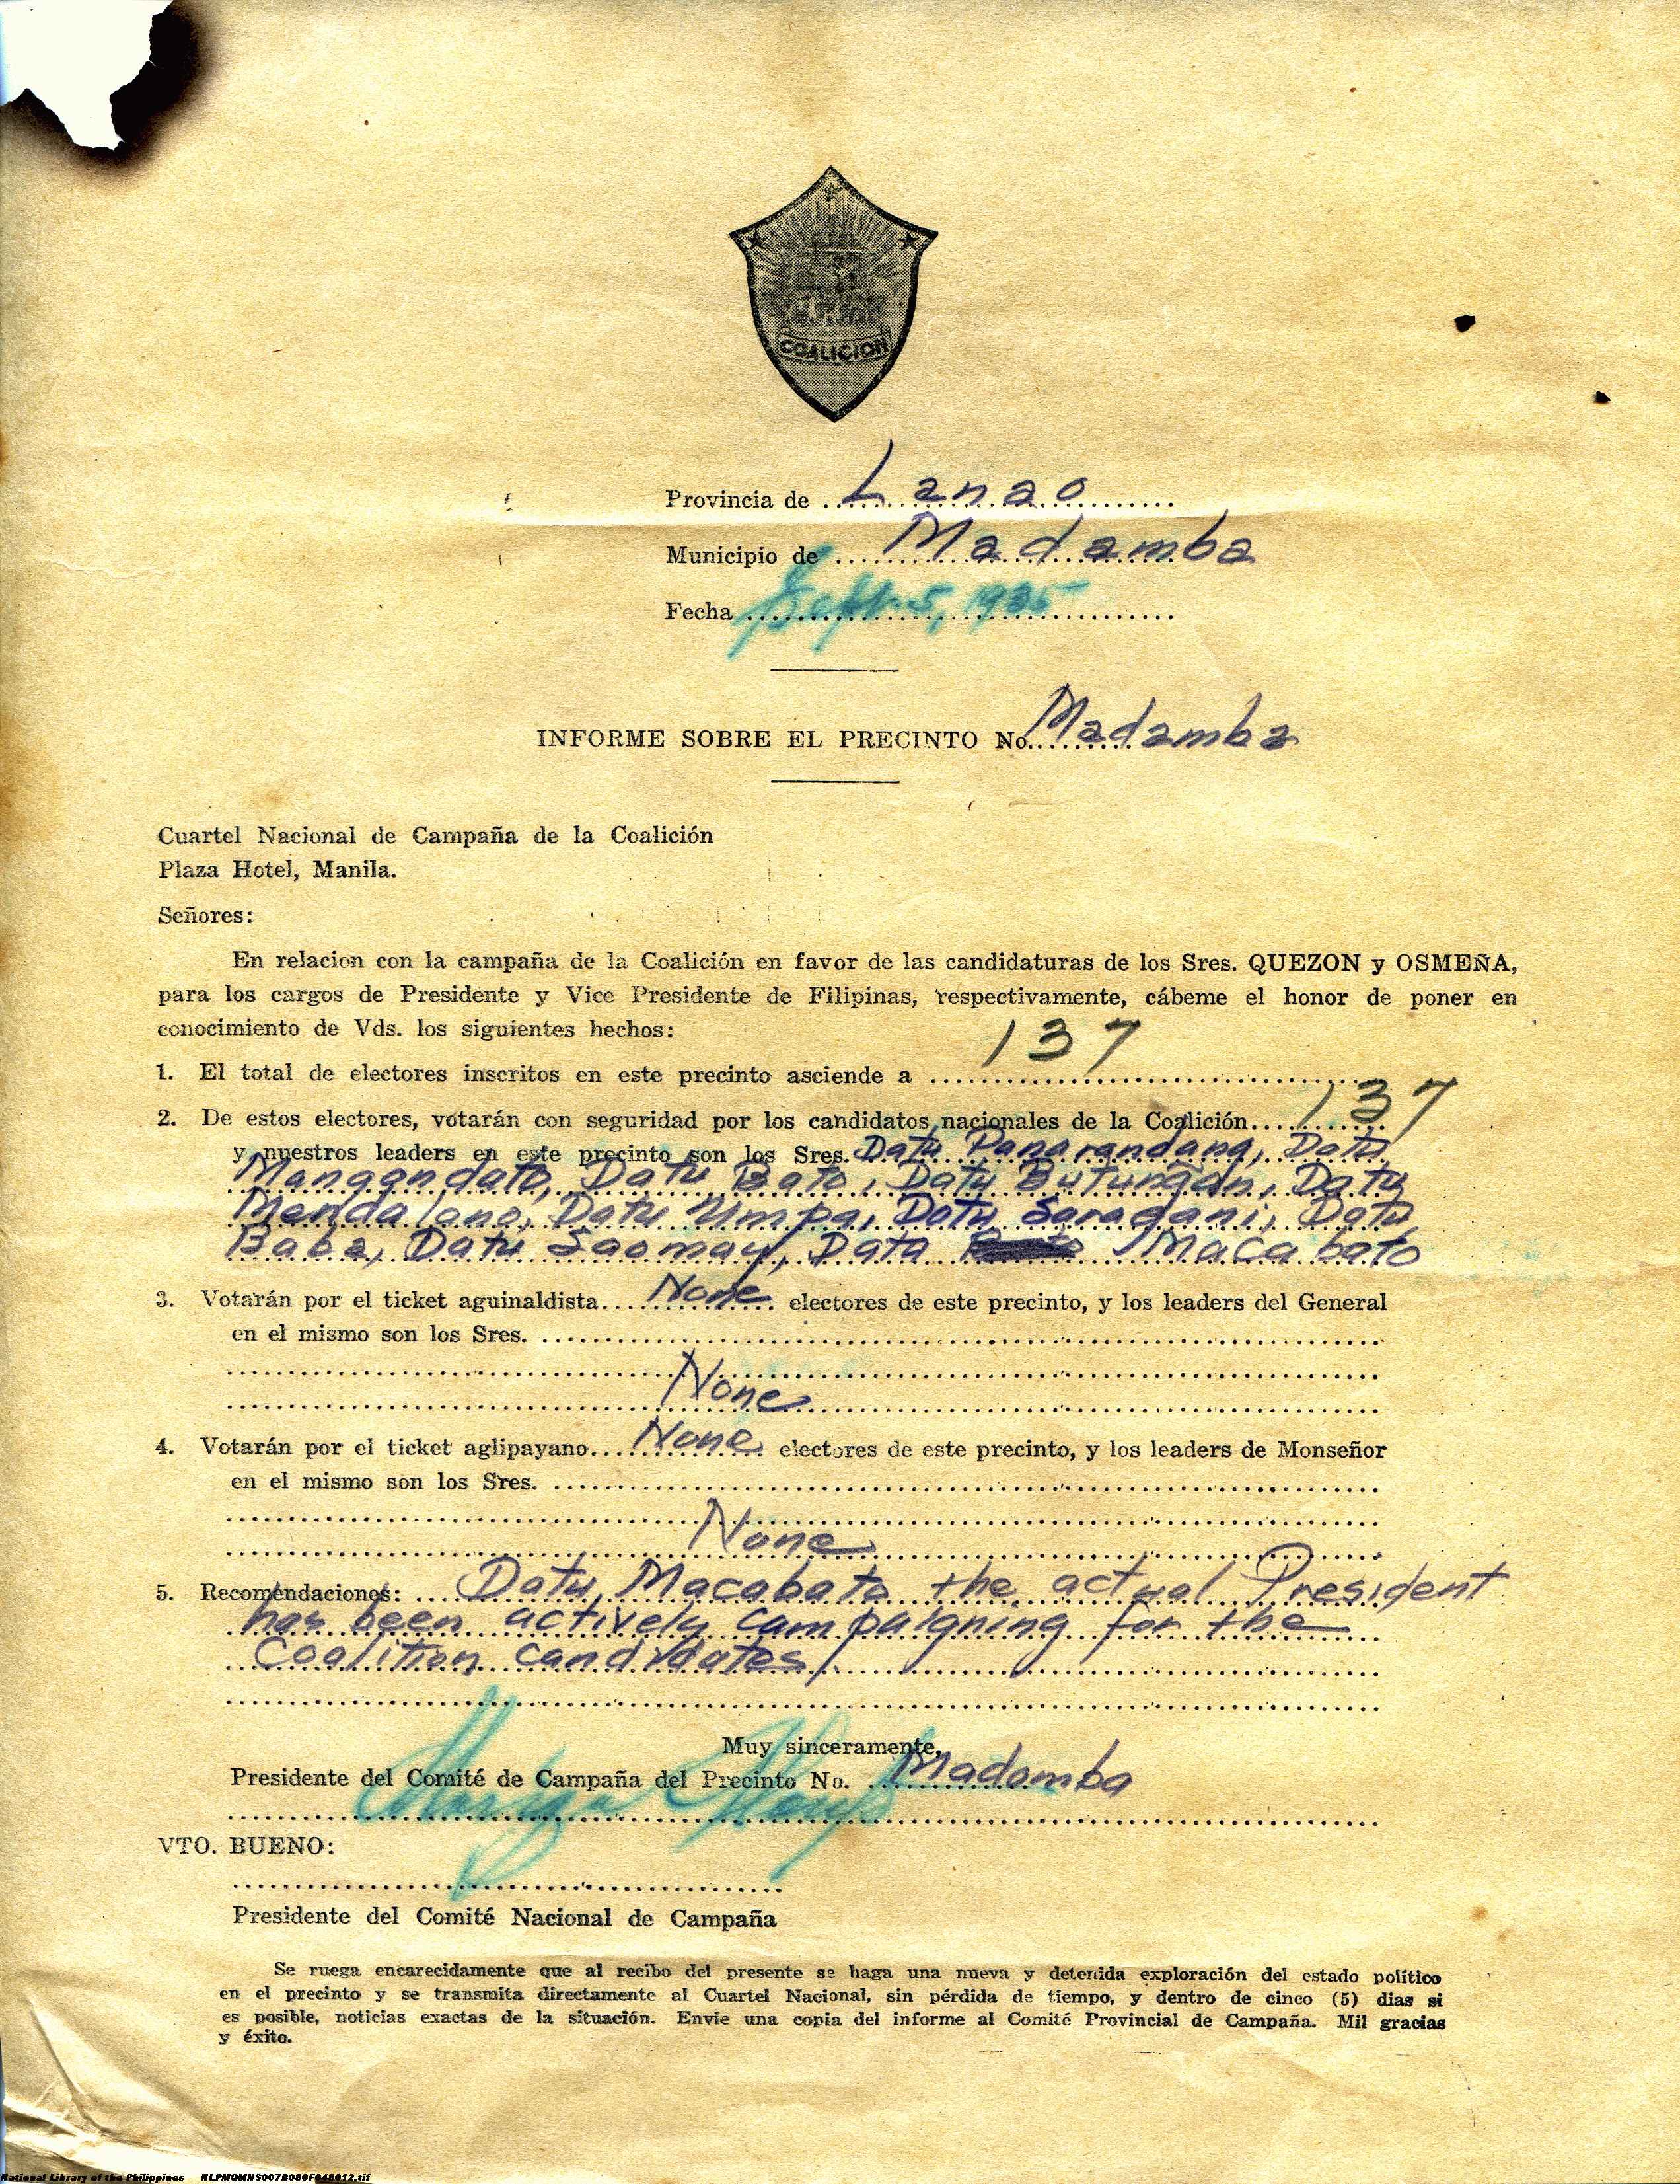 COALICION
Provincia de Lanao
Municipio de Madamba
Fecha Sept. 5, 1935
INFORME SOBRE EL PRECINTO No. Madamba
Cuartel Nacional de Campaña de la Coalición
Plaza Hotel, Manila.
Señores:
En relacion con la campaña de la Coalición en favor de las candidaturas de los Sres. QUEZON y OSMEÑA,
para los cargos de Presidente y Vice Presidente de Filipinas, respectivamente, cábeme el honor de poner en
conocimiento de Vds. los siguientes hechos:
1. El total de electores inscritos en este precinto asciende a 137
2. De estos electores, votarán con seguridad por los candidatos nacionales de la Coalición 137
y nuestros leaders en este precinto son los Sres. Datu Panarandang, Datu
Mangondato, Datu Bato, Datu Butungan, Datu
Mandalano, Datu Umpa, Datu Saragani, Datu
Baba, Datu Saomay, Data Macabato
3. Votarán por el ticket aguinaldista None electores de este precinto, y los leaders del General
en el mismo son los Sres.
None
4. Votarán por el ticket aglipayano None electores de este precinto, y los leaders de Monseñor
en el mismo son los Sres.
None
5. Recomendaciones: Datu Macabato the actual President
has been actively campaigning for the
Coalition candidates.
Muy sinceramente,
Presidente del Comité de Campaña del Precinto No. Madamba
VTO. BUENO:
Presidente del Comité Nacional de Campaña
Se ruega encarecidamente que al recibo del presente se haga una nueva y detenida exploración del estado político
en el precinto y se transmita directamente al Cuartel Nacional, sin pérdida de tiempo, y dentro de cinco (5) dias si
es posible, noticias exactas de la situación. Envie una copia del informe al Comité Provincial de Campaña. Mil gracias
y éxito.
National Library of the Philippines NLPMQMNS007B080F048012.tif